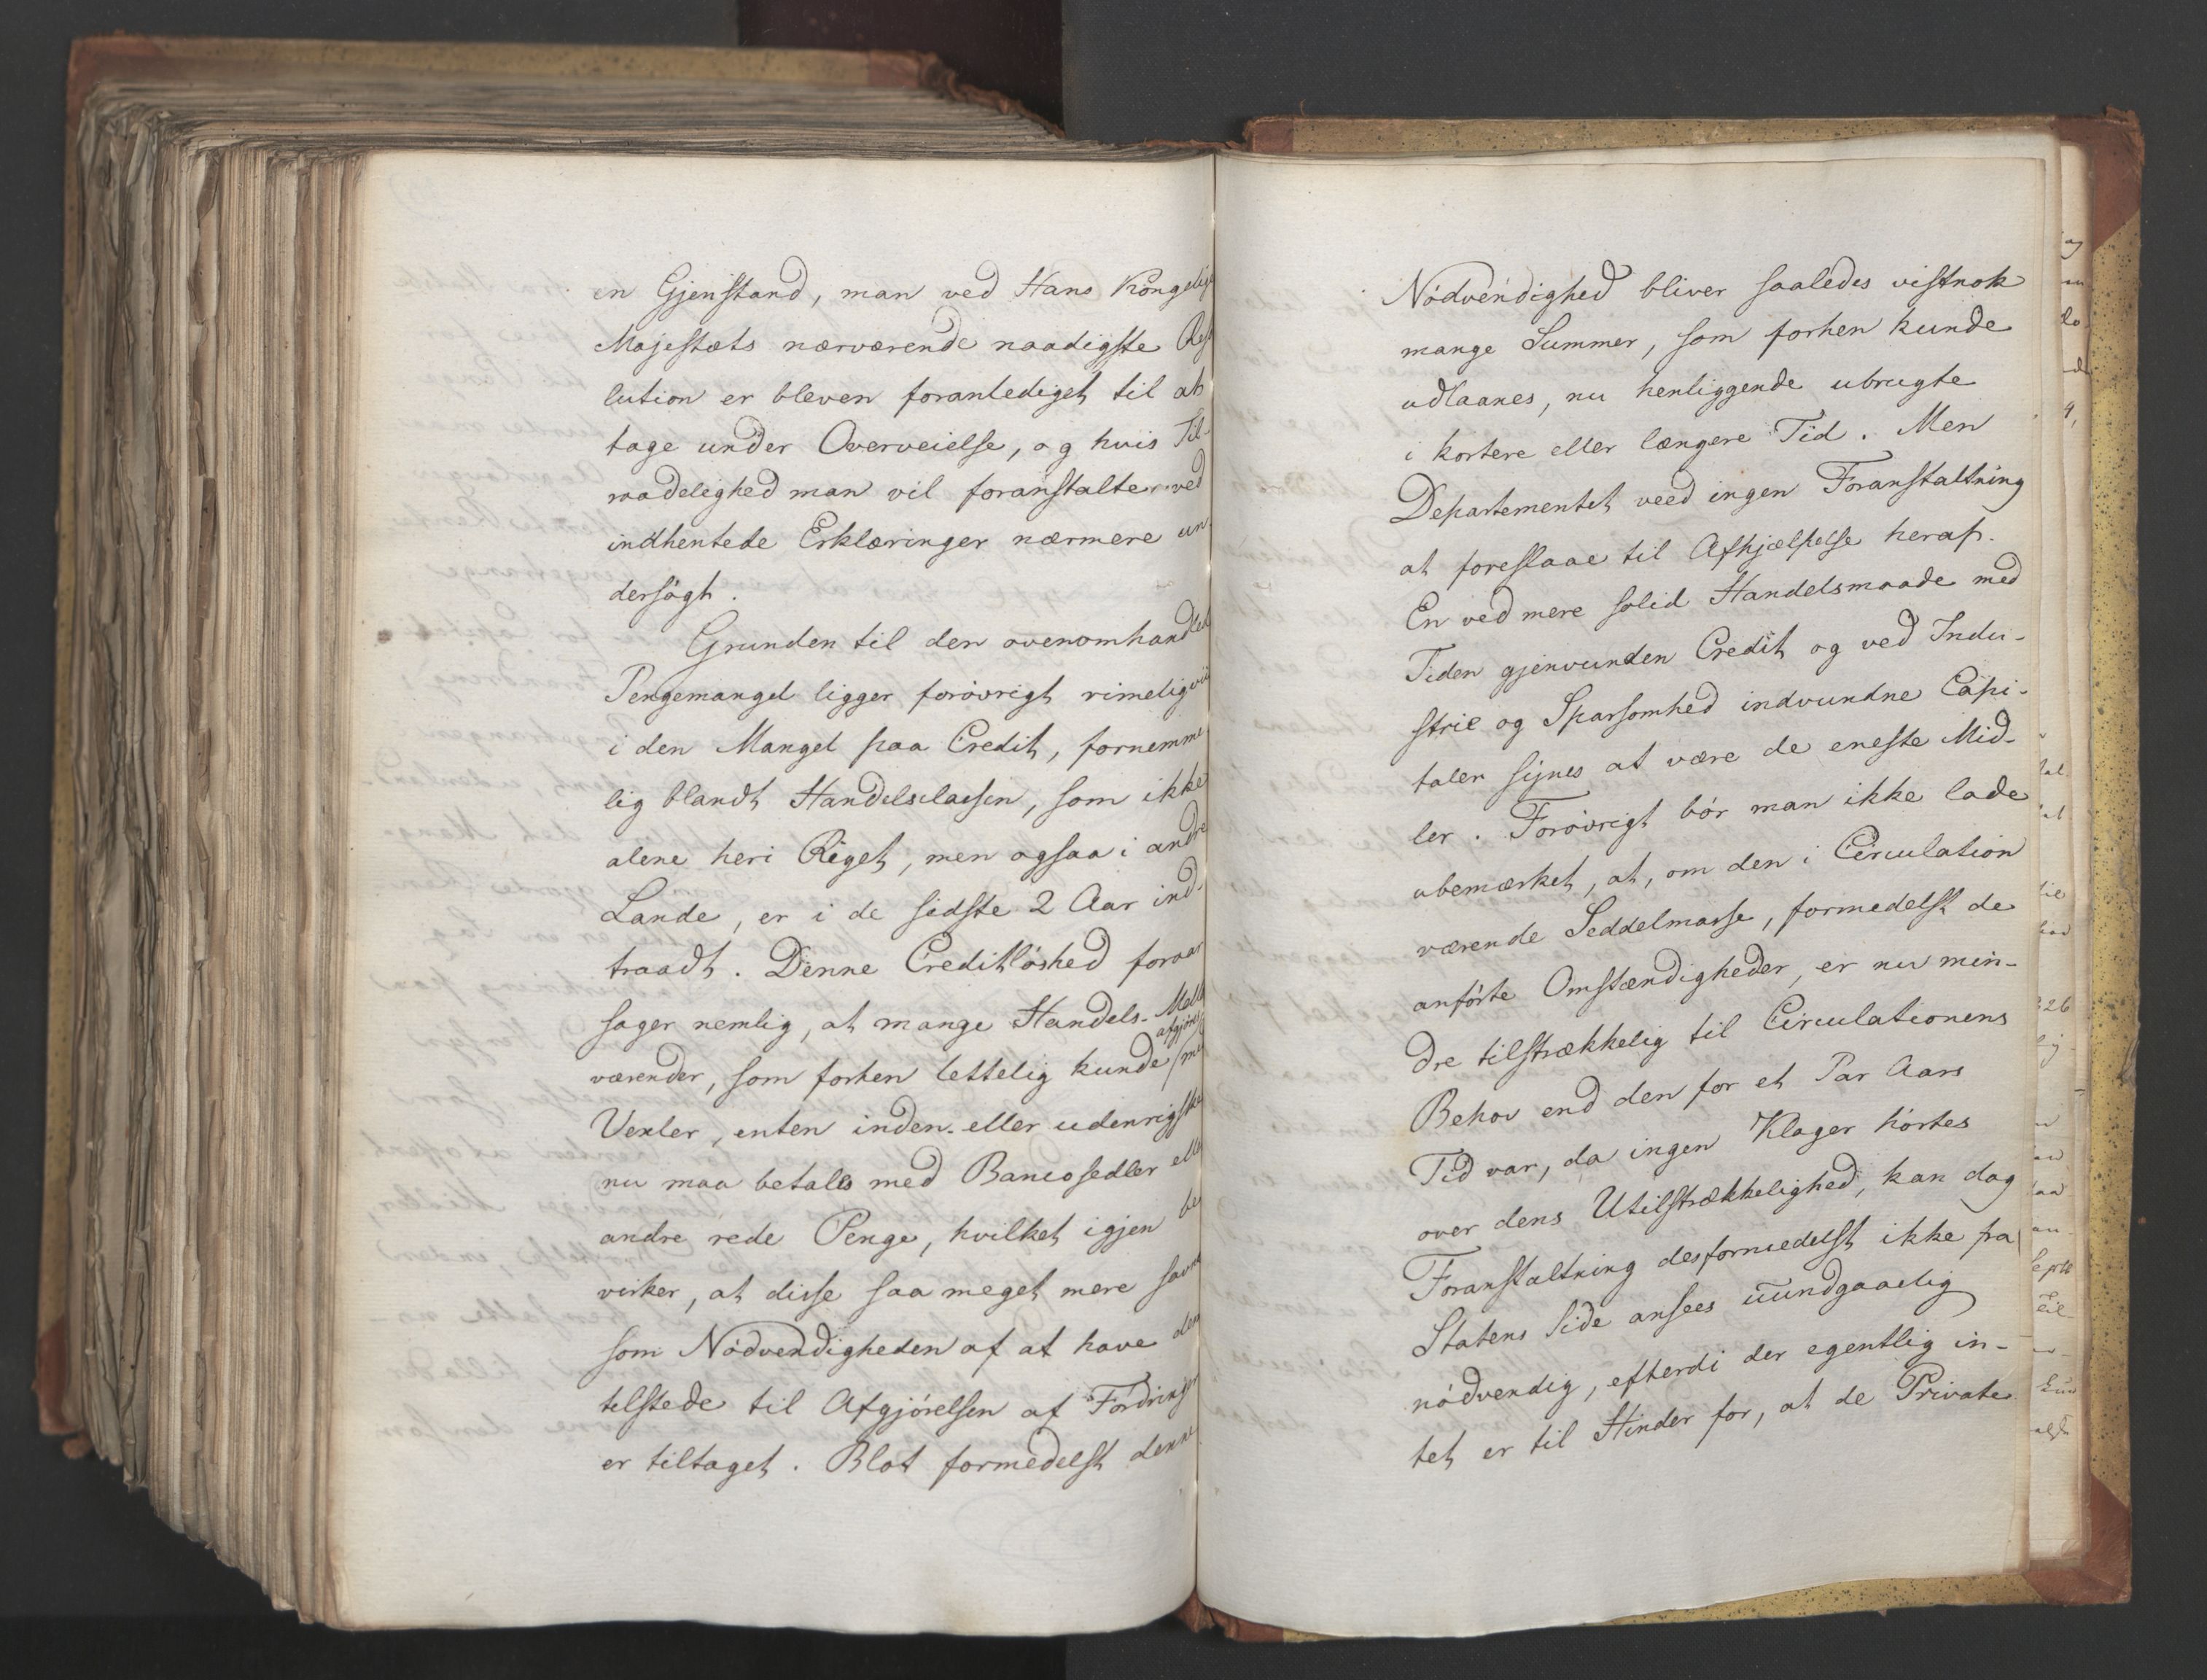 en Gjenstand, man ved Hans Kongelige
Majestæts nærværende naadigste Reso
lution er bleven foranlediget til at
tage under Overveielse, og hvis Til-
raadelighed man vil foranstalter ved
indhentede Erklæringer nærmere un
dersøgt.
Grunden til den ovenomhandlede
Pengemangel ligger forøvrigt rimeligviis
i den Mangel paa Credit, fornemme
lig blandt Handelsclassen, som ikke
alene heri Riget, men ogsaa i andre
Lande, er i de sidste 2 Aar ind-
traadt. Denne Creditløshed foraar
sager nemlig, at mange Handels-Mell
afgjøres
værender, som forhen lettelig kunde med
Vexler, enten inden- eller udenrigske
nu maa betales med Bancosedler eller
andre rede Penge, hvilket igjen be
virker, at disse saa meget mere savne
som Nødvendigheden af at have dem
tilstede til Afgjørelsen af Fordringer
er tiltaget. Blot formedelst denne
Nødvendighed bliver saaledes vistnok
mange Summer, som forhen kunde
udlaanes, nu henliggende ubrugte
i kortere eller længere Tid. Men
Departementet veed ingen Foranstaltning
at foreslaae til Afhjælpelse heraf.
En ved mere solid Handelsmaade med
Tiden gjenvunden Credit og ved Indu-
strie og Sparsomhed indvundne Capi-
taler synes at være de eneste Mid-
ler. Forøvrigt bør man ikke lade
ubemærket, at, om den i Circulation
værende Seddelmasse, formedelst de
anførte Omstændigheder, er nu min-
dre tilstrækkelig til Circulationens
Behov end den for et Par Aars
Tid var, da ingen Klager hørtes
over dens Utilstrækkelighed, kan dog
Foranstaltning desformedelst ikke fra
Statens Side ansees uundgaaelig
nødvendig, efterdi der egentlig in-
tet er til Hinder for, at de Private